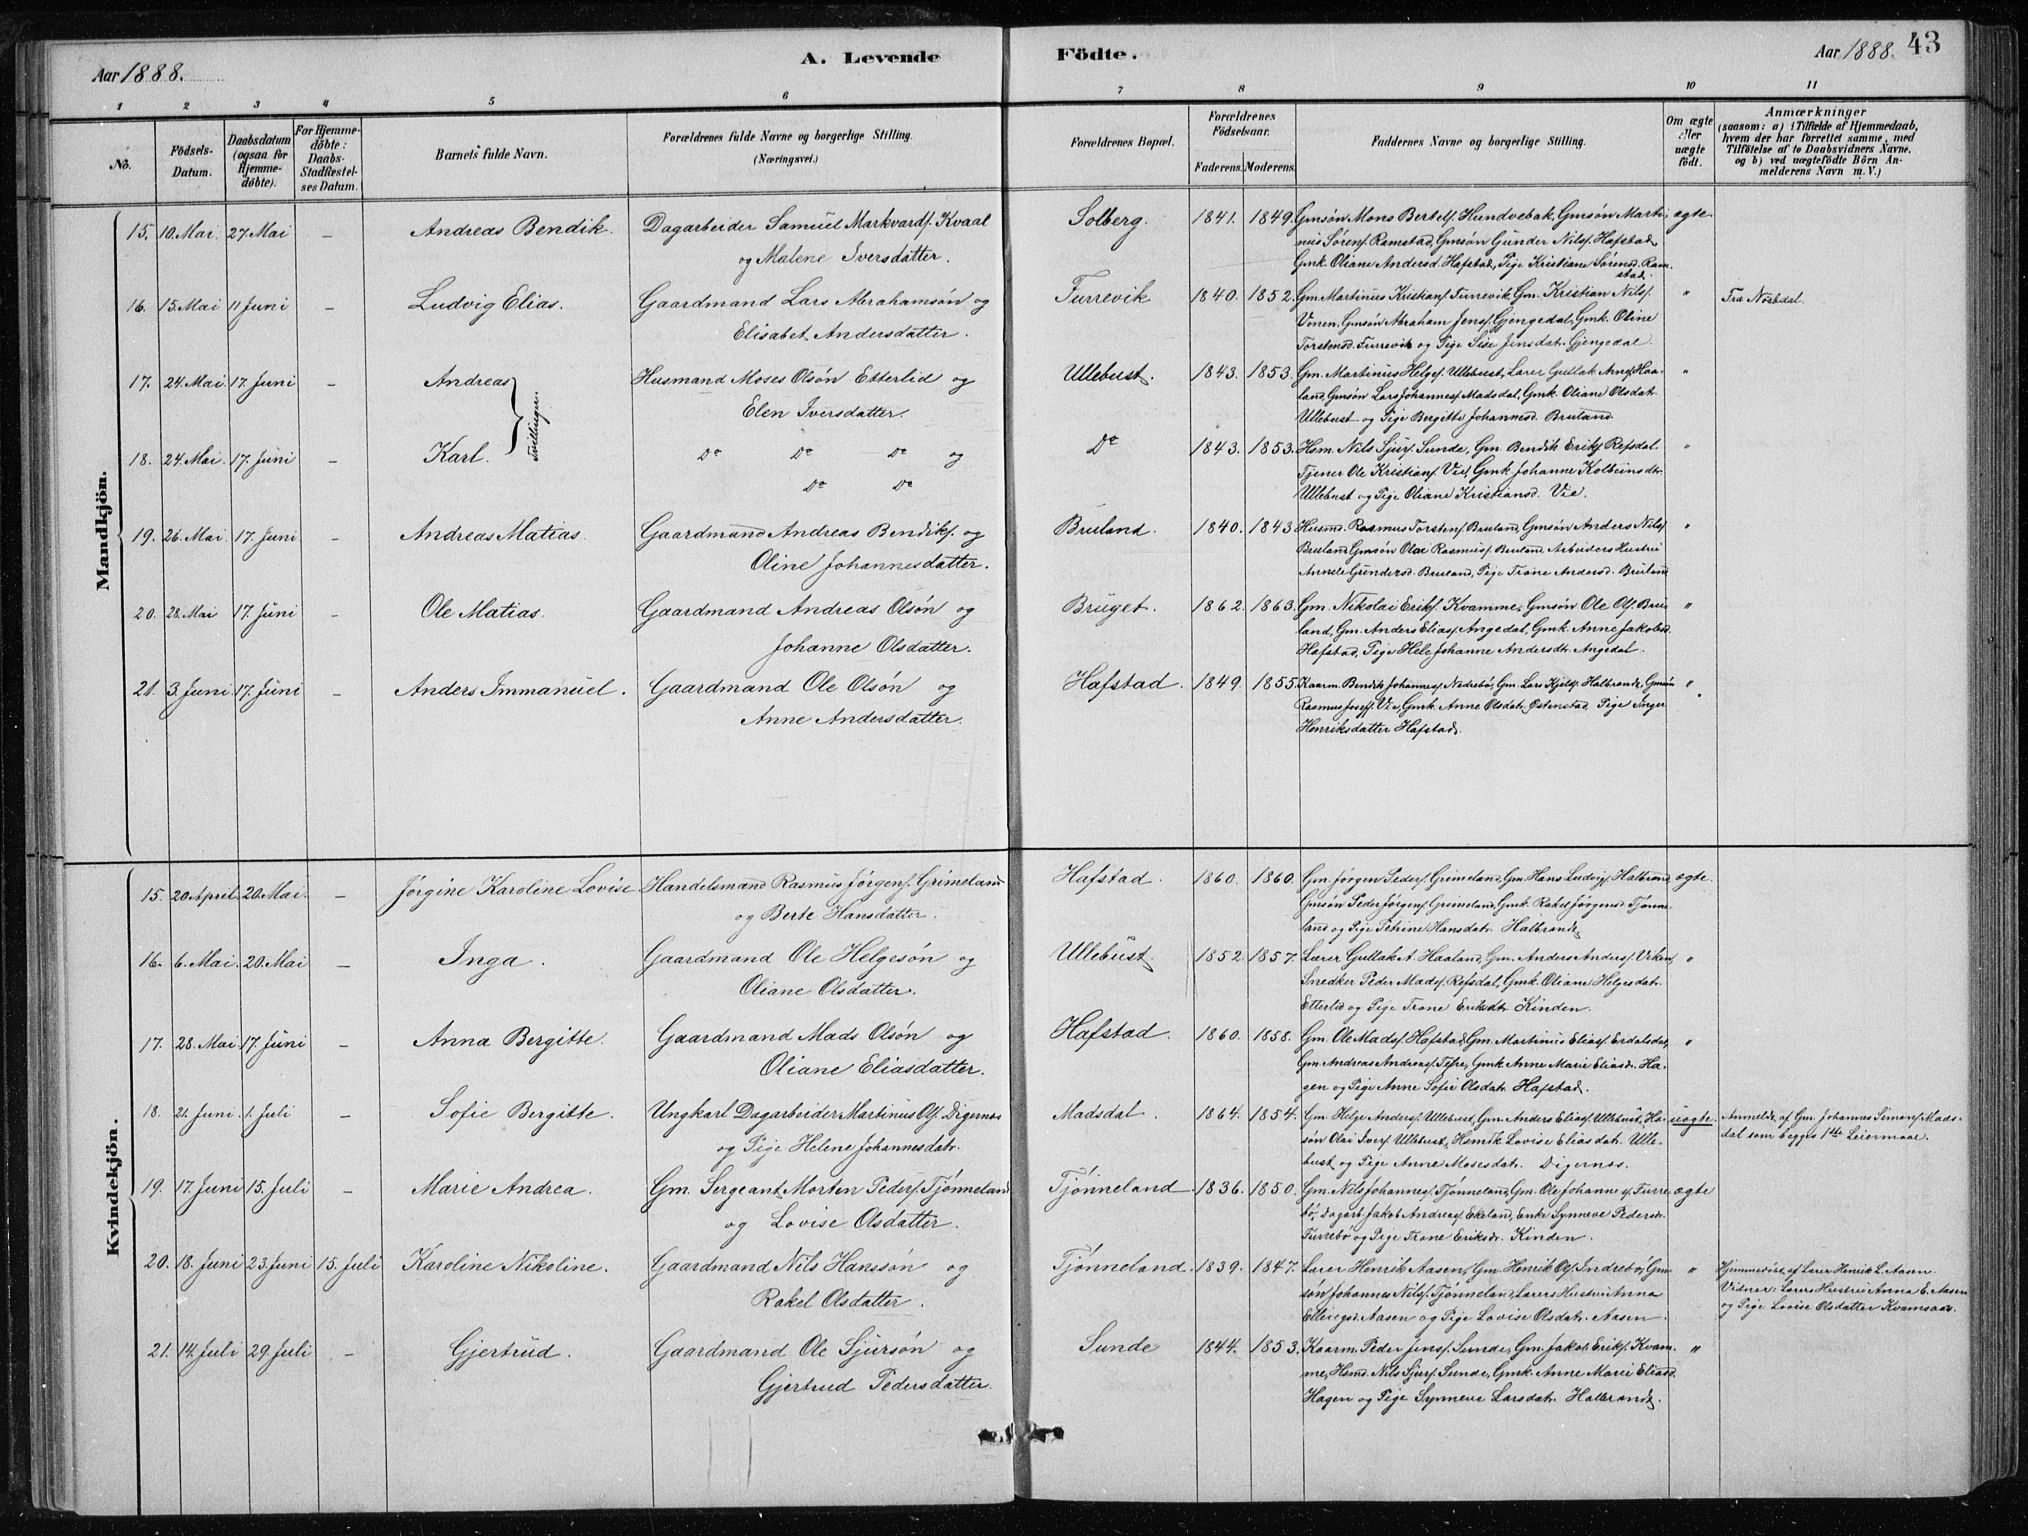 Aar 1888.
A. Levende
Födte.
Aar 1888.
43
1 2 3 4 5 6 7 8 9 10 11
Nô.
Födsels-
Datum.
Daabsdatum
(ogsaa for
Hjemme-
döbte).
For Hjemme-
döbte:
Daabs-
Stadfæstel-
ses Datum.
Barnets fulde Navn.
Forældrenes fulde Navne og borgerlige Stilling.
(Næringsvei.)
Forældrenes Bopæl.
Forældrenes
Födselsaar.
Faderens. Moderens.
Faddernes Navne og borgerlige Stilling.
Om ægte
eller
uægte
födt.
Anmærkninger
(saasom: a) i Tilfælde af Hjemmedaab,
hvem der har forrettet samme, med
Tilföielse af to Daabsvidners Navne,
og b) ved uægtefödte Börn An-
melderens Navn m.V.)
Mandkjön.
15. 10. Mai. 27. Mai – Andreas Bendik. Dagarbeider Samuel Markvards. Kvaal
og Malene Iversdatter.
Solberg. 1841. 1849. Gmsøn Mons Bertels. Hundvebak, Gmsøn Marti- ægte.
nus Sørens. Ramstad, Gmsøn Gunder Nils. Hafstad,
Gmk. Oliane Andersd. Hafstad, Pige Kristiane Sørensd. Ram-
stad.
16. 15. Mai 11 Juni – Ludvig Elias. Gaardmand Lars Abrahamsøn og
Elisabet Andersdatter.
Furrevik 1840. 1852. Gm. Martinus Kristians. Furrevik, Gm. Kristian Nils. " Fra Norddal.
Vonen, Gmsøn Abraham Jens. Gjengedal, Gmk. Oline
Torstensd. Furrevik og Pige Sise Jensdatr. Gjengedal.
17. 24. Mai 17. Juni – Andreas Husmand Moses Olsøn Etterlid og
Elen Iversdatter.
Tvillinger.
Ullebust. 1843. 1853. Gm. Martinus Helges. Ullebust, Lærer Gullak Arnes. Haa- "
land, Gmsøn Lars Johannes. Madsdal, Gmk. Oliane Olsdatr.
Ullebust og Pige Bergitte Johannesd. Bruland.
18. 24. Mai. 17. Juni – Karl. Do Do Do og
Do Do
Do 1843. 1853. Hsm. Nils Sjurs. Sunde, Gm. Bendik Eriks. Refsdal. "
Tjener Ole Kristians. Vie, Gmk. Johanne Kolbeinsdtr.
Ullebust og Pige Oliane Kristiansd. Vie.
19. 26. Mai. 17. Juni – Andreas Matias. Gaardmand Andreas Bendiks. og
Oline Johannesdatter.
Bruland. 1840. 1843. Husmd. Rasmus Torstens. Bruland, Gmsøn Anders Nils. "
Bruland, Gmsøn Olai Rasmus. Bruland, Arbeiders Hustru
Annele Gundersd. Bruland, Pige Trone Andersd. Bruland
20. 28. Mai 17. Juni – Ole Matias. Gaardmand Andreas Olsøn og
Johanne Olsdatter.
Bruget. 1862. 1863. Gm. Nikolai Eriks. Kvamme, Gmsøn Ole Ols. Bru- "
land, Gm. Anders Elias. Angedal, Gmk. Anne Jakobsd.
Hafstad, Pige Hele Johanne Andersdt. Angedal.
21. 3. Juni 17. Juni – Anders Immanuel. Gaardmand Ole Olsøn og
Anne Andersdatter.
Hafstad. 1849. 1855. Kaarm. Bendik Johannes. Nedrebø, Gm. Lars Kjels. Halbrand, Gmsøn "
Rasmus Josefs. Vie, Gmk. Anne Olsdatr. Østenstad, Pige Inger
Henriksdatter Hafstad.
Kvindekjön.
15. 20. April. 20. Mai. – Jørgine Karoline Lovise Handelsmand Rasmus Jørgens. Grimeland
og Berte Hansdatter.
Hafstad. 1860. 1860. Gm. Jørgen Peders. Grimeland, Gm. Hans Ludvigs. Halbrand, ægte.
Gmsøn Peder Jørgens. Grimeland, Gmk. Rakel Jørgensd. Tjønne-
land og Pige Petrine Hansdatr. Halbrand.
16. 6. Mai. 20. Mai – Inga. Gaardmand Ole Helgesøn og
Oliane Olsdatter.
Ullebust. 1852. 1857. Lærer Gullak A. Haaland, Gm. Anders Anders. Viken, "
Snedker Peder Mads. Refsdal, Gmk. Oliane Helgesdatr.
Etterlid og Pige Trone Eriksdtr. Kinden.
17. 28. Mai. 17. Juni – Anna Bergitte. Gaardmand Mads Olsøn og
Oliane Eliasdatter.
Hafstad. 1860. 1858. Gm. Ole Mads. Hafstad, Gm. Martinus Elias. Erdalsdal, "
Gm. Andreas Andreas. Tefre, Gmk. Anne Marie Eliasd. Ha-
gen og Pige Anne Sofie Olsdatr. Hafstad.
18. 21. Juni. 1. Juli – Sofie Bergitte. Ungkarl Dagarbeider Martinus Ols. Digernæs
og Pige Helene Johannesdatr.
Madsdal. 1864. 1854. Gm. Helge Anders. Ullebust, Gm. Anders Elias. Ullebust, Hs- uægte. Anmeldt af Gm. Johannes Simons. Mads-
søn Olai Ivers. Ullebust, Hsmk. Lovise Eliasdatr. Ulle- dal som begges 1ste Leiermaal.
bust og Pige Anne Mosesdatr. Digernæs.
19. 17. Juni 15. Juli – Marie Andrea. Gm. Sergeant Morten Peders. Tjønneland
og Lovise Olsdatter.
Tjønneland 1836. 1850. Gm. Nils Johannes. Tjønneland, Gm. Ole Johannes. Furre- ægte
bø, Dagarb. Jakob Andreas. Ekeland, Enke Synneve Pedersdr.
Furrebø og Pige Trone Eriksdr. Kinden.
20. 18. Juni 23. Juni 15. Juli Karoline Nikoline. Gaardmand Nils Hanssøn og
Rakel Olsdatter.
Tjønneland. 1839. 1847. Lærer Henrik Aasen, Gm. Henrik Ols. Indrebø, Gm- " Hjemmedøbt af Lærer Henrik L. Aasen.
søn Johannes Nils. Tjønneland, Lærers Hustru Anna Vidner: Lærers Hustru Anna E. Aasen
Ellingsd. Aasen og Pige Lovise Olsdatr. Aasen. og Pige Lovise Olsdatter Kvamsaas.
21. 14. Juli 29. Juli – Gjertrud. Gaardmand Ole Sjursøn og
Gjertrud Pedersdatter.
Sunde 1844. 1853. Kaarm. Peder Jens. Sunde, Gm. Jakob Eriks. Kvam- "
me, Hsmd. Nils Sjurs. Sunde, Gmk. Anne Marie Eliasd.
Hagen og Pige Synneve Larsdatr. Halbrand.